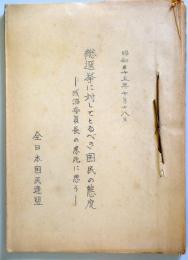 昭和三十五年十月十八日
総選挙に対してとるべき国民の態度
―浅沼委員長の暴死に思う―
全日本国民連盟